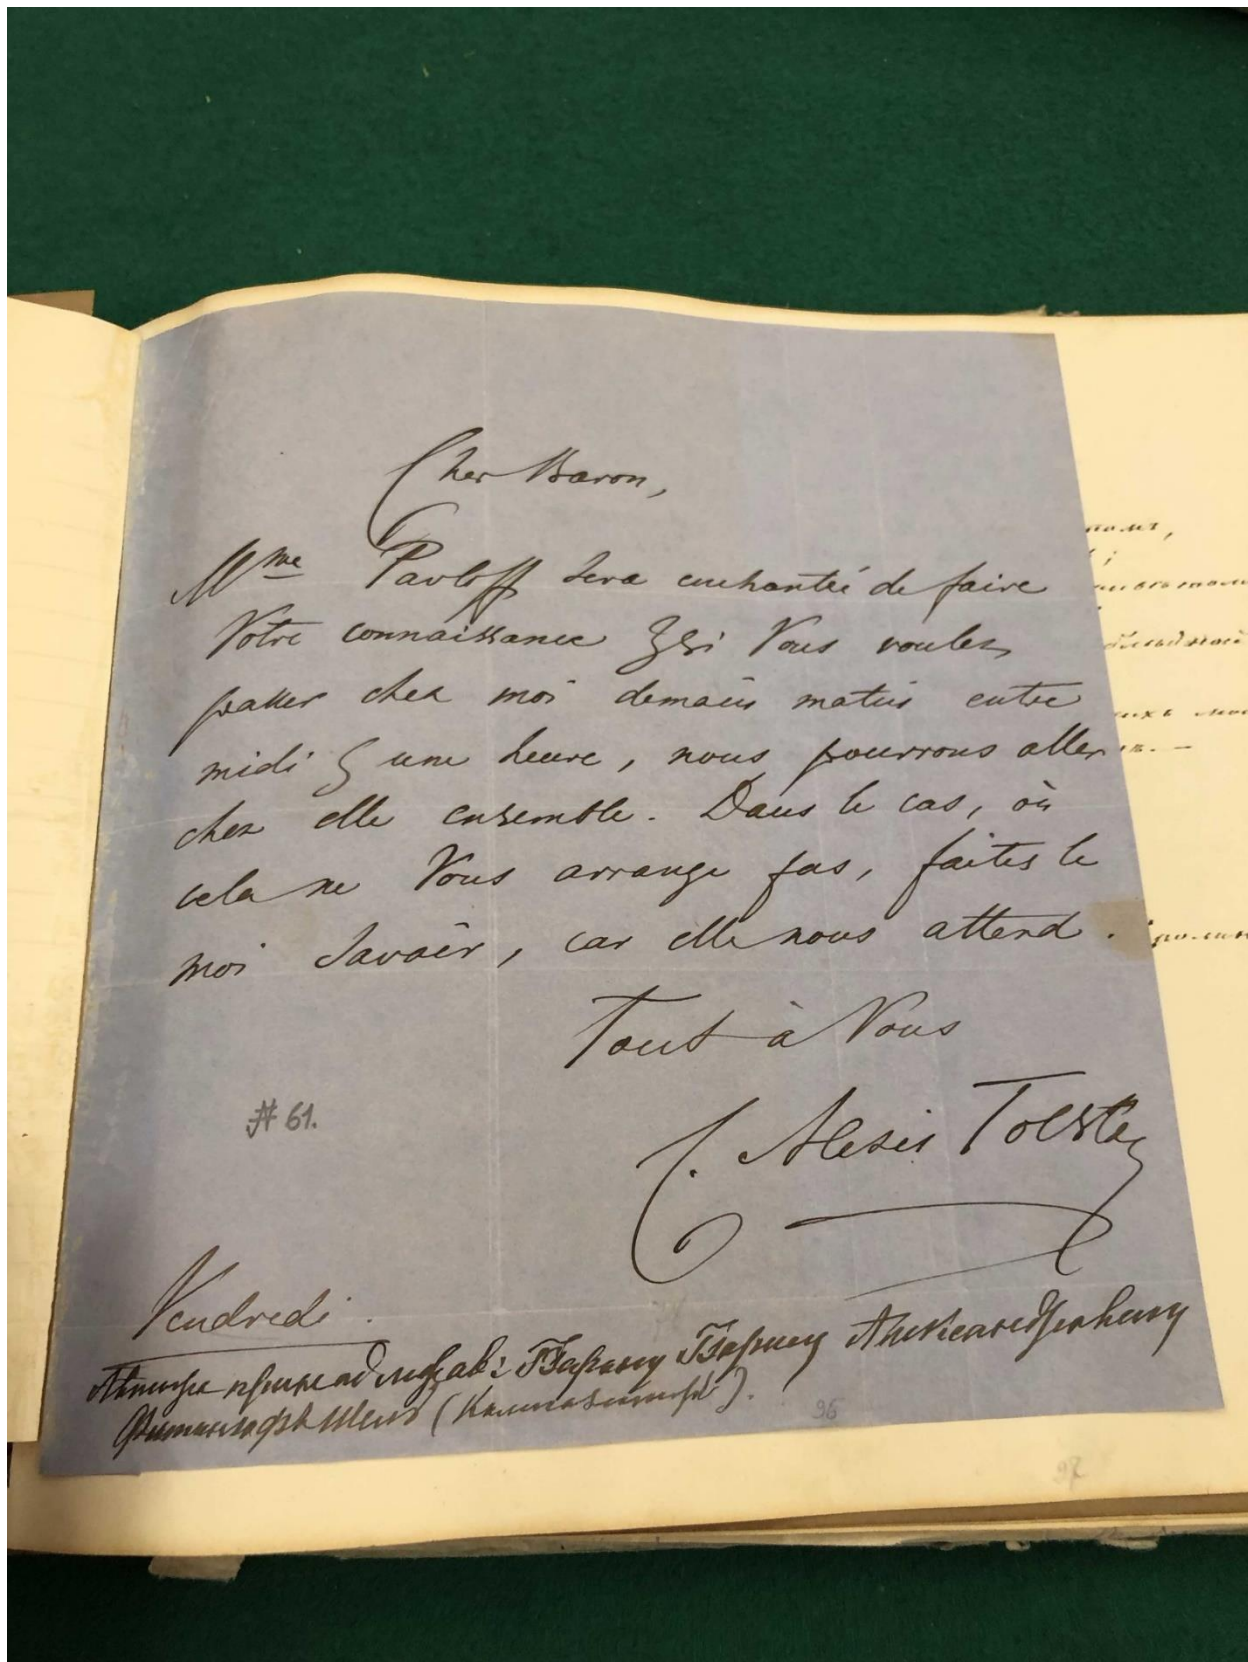 Cher Baron,
Mme Pavloff sera enchantée de faire
Votre connaissance & si Vous voulez
passer chez moi demain matin entre
midi & une heure, nous pourrons aller
chez elle ensemble. Dans le cas, où
cela ne Vous arrange pas, faites le
moi savoir, car elle nous attend.
Tout à Vous
C. Alexis Tolstoy
# 61.
Vendredi.
Барону Борису Александровичу
96
97